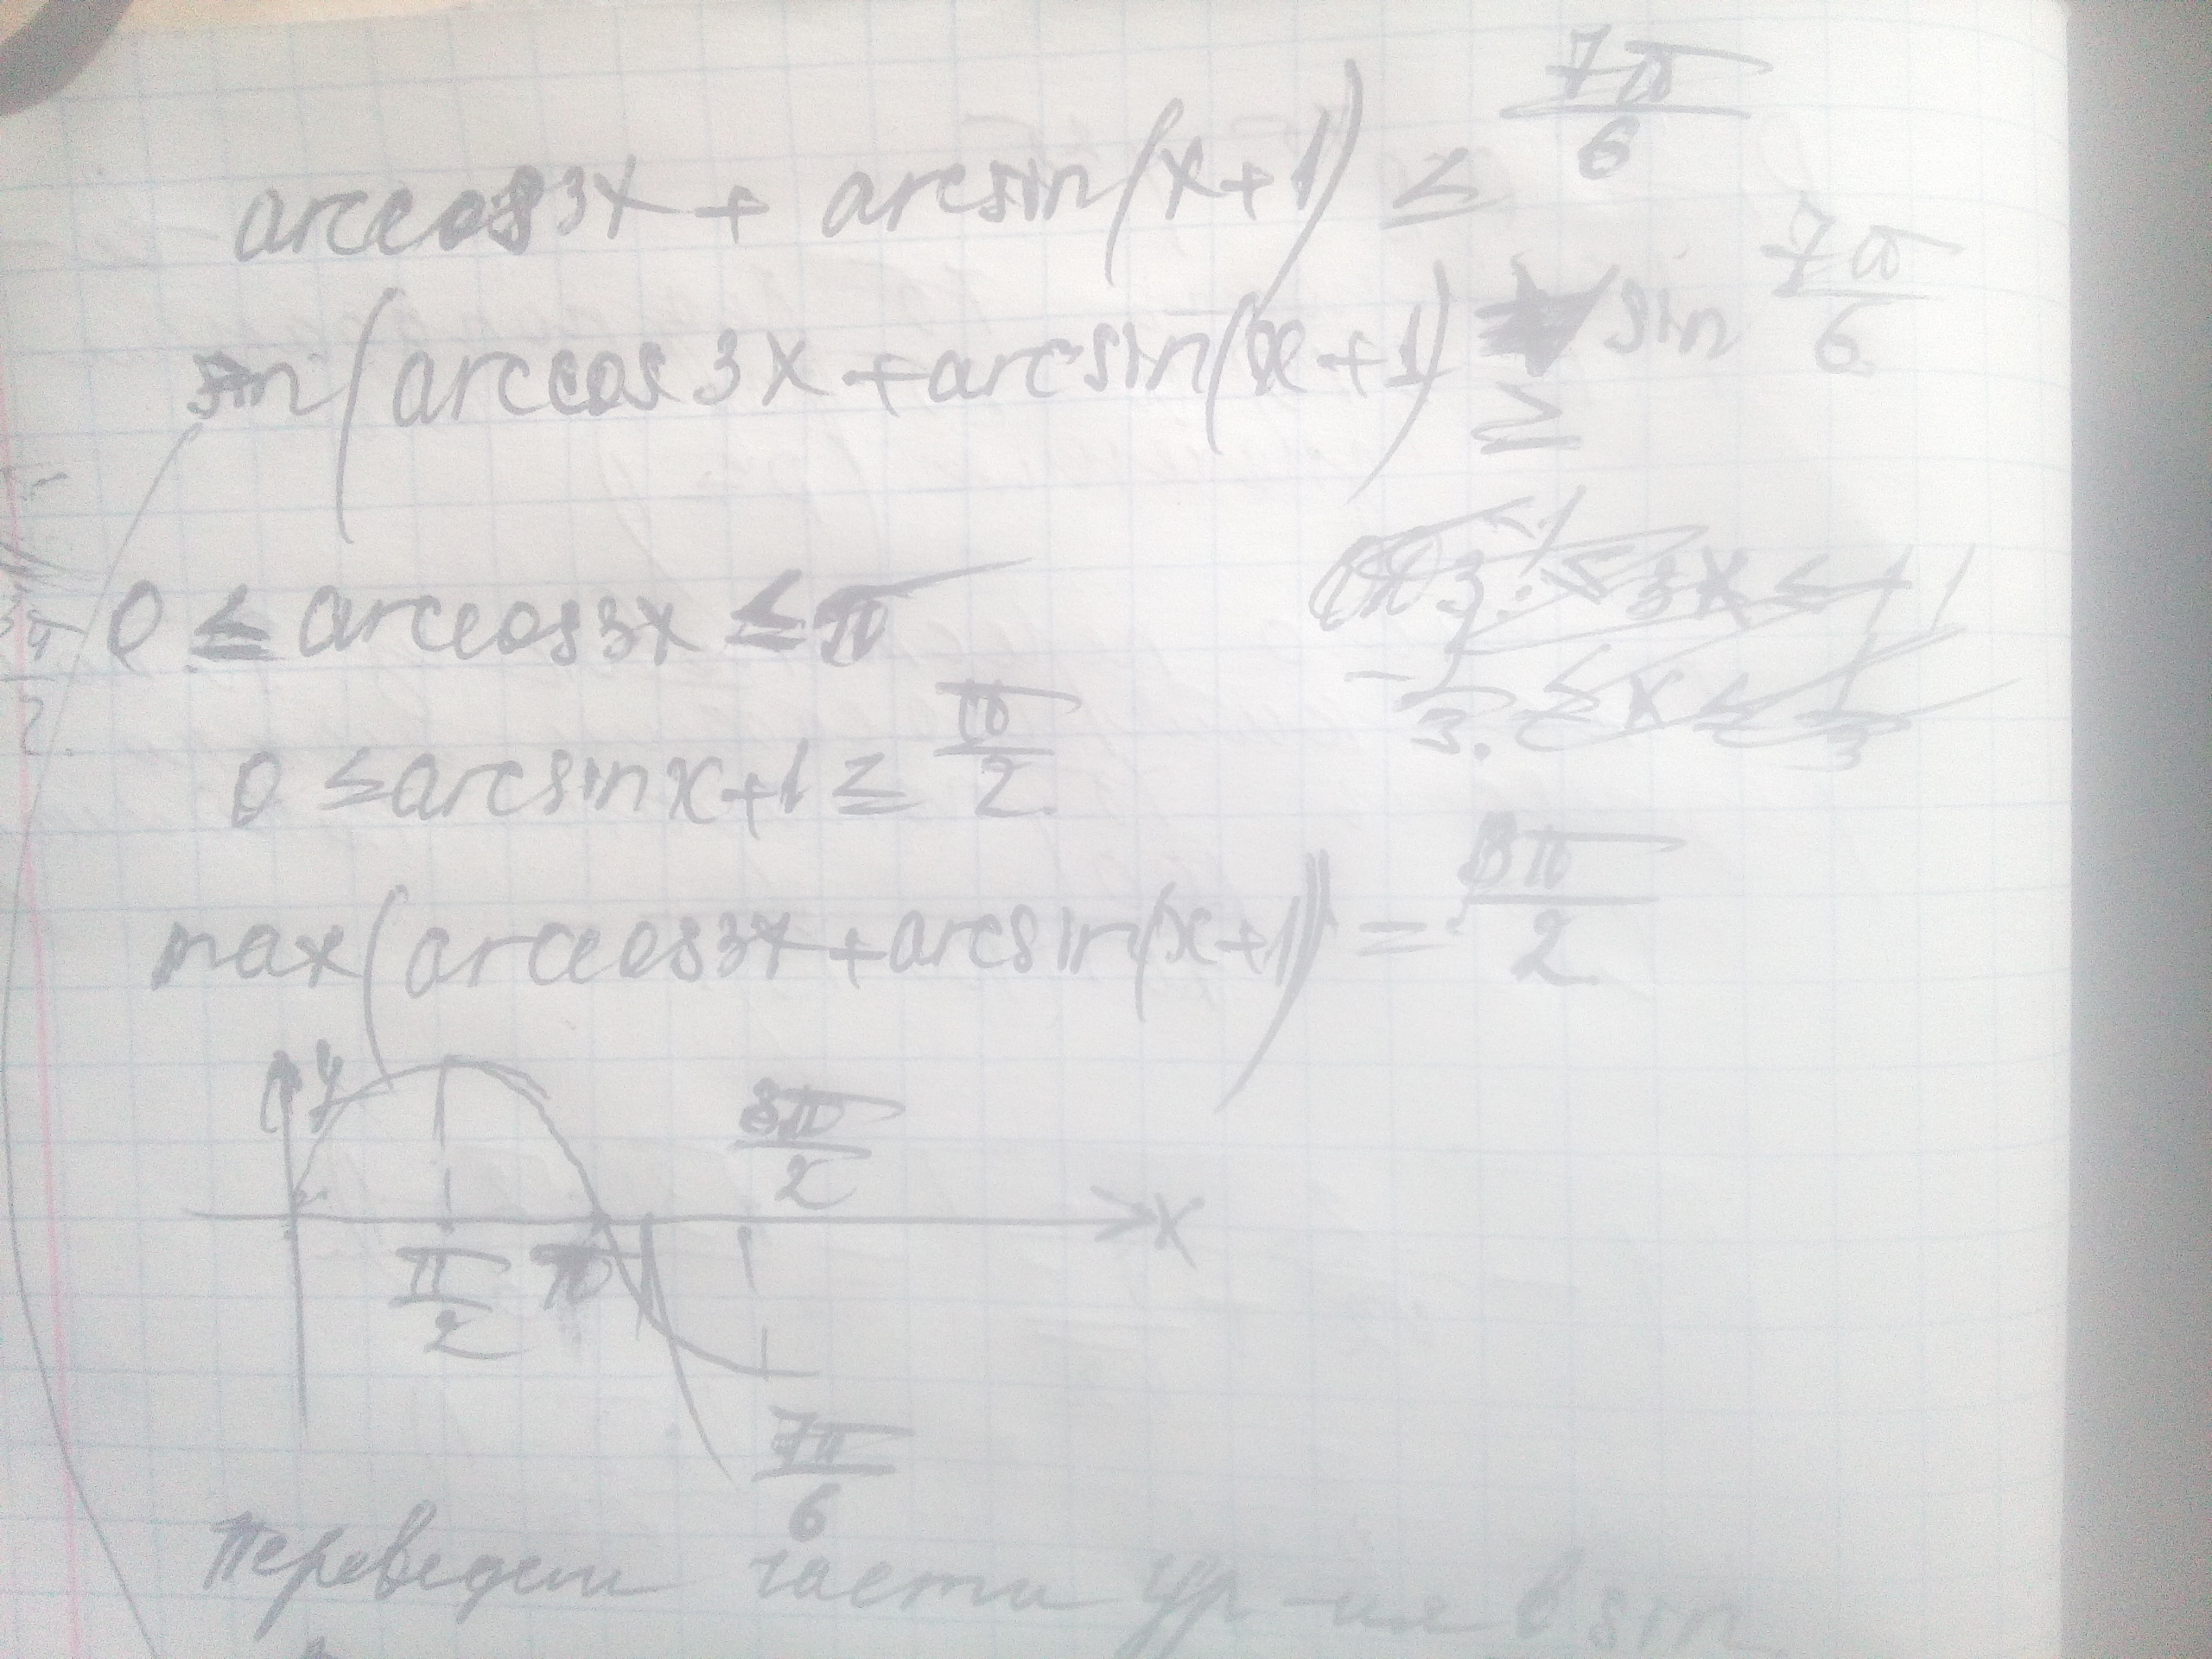 arccos3x + arcsin(x+1) ≤ 7π/6
sin(arccos3x + arcsin(x+1)) ≥ sin 7π/6
0 ≤ arccos3x ≤ π
0 ≤ arcsinx+1 ≤ π/2
max(arccos3x + arcsin(x+1)) = 3π/2
y
3π/2
x
π/2 π
7π/6
Переведем части ур-ия в sin